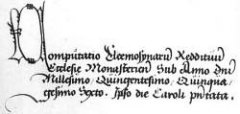 Computatio Eleemosynarũ Reddituũ
Ecclesie Monasterien Sub Anno Dnĩ
Millesimo, Quingentesimo, Quinqua,
gesimo Sexto. Ipso die Caroli pñtata.